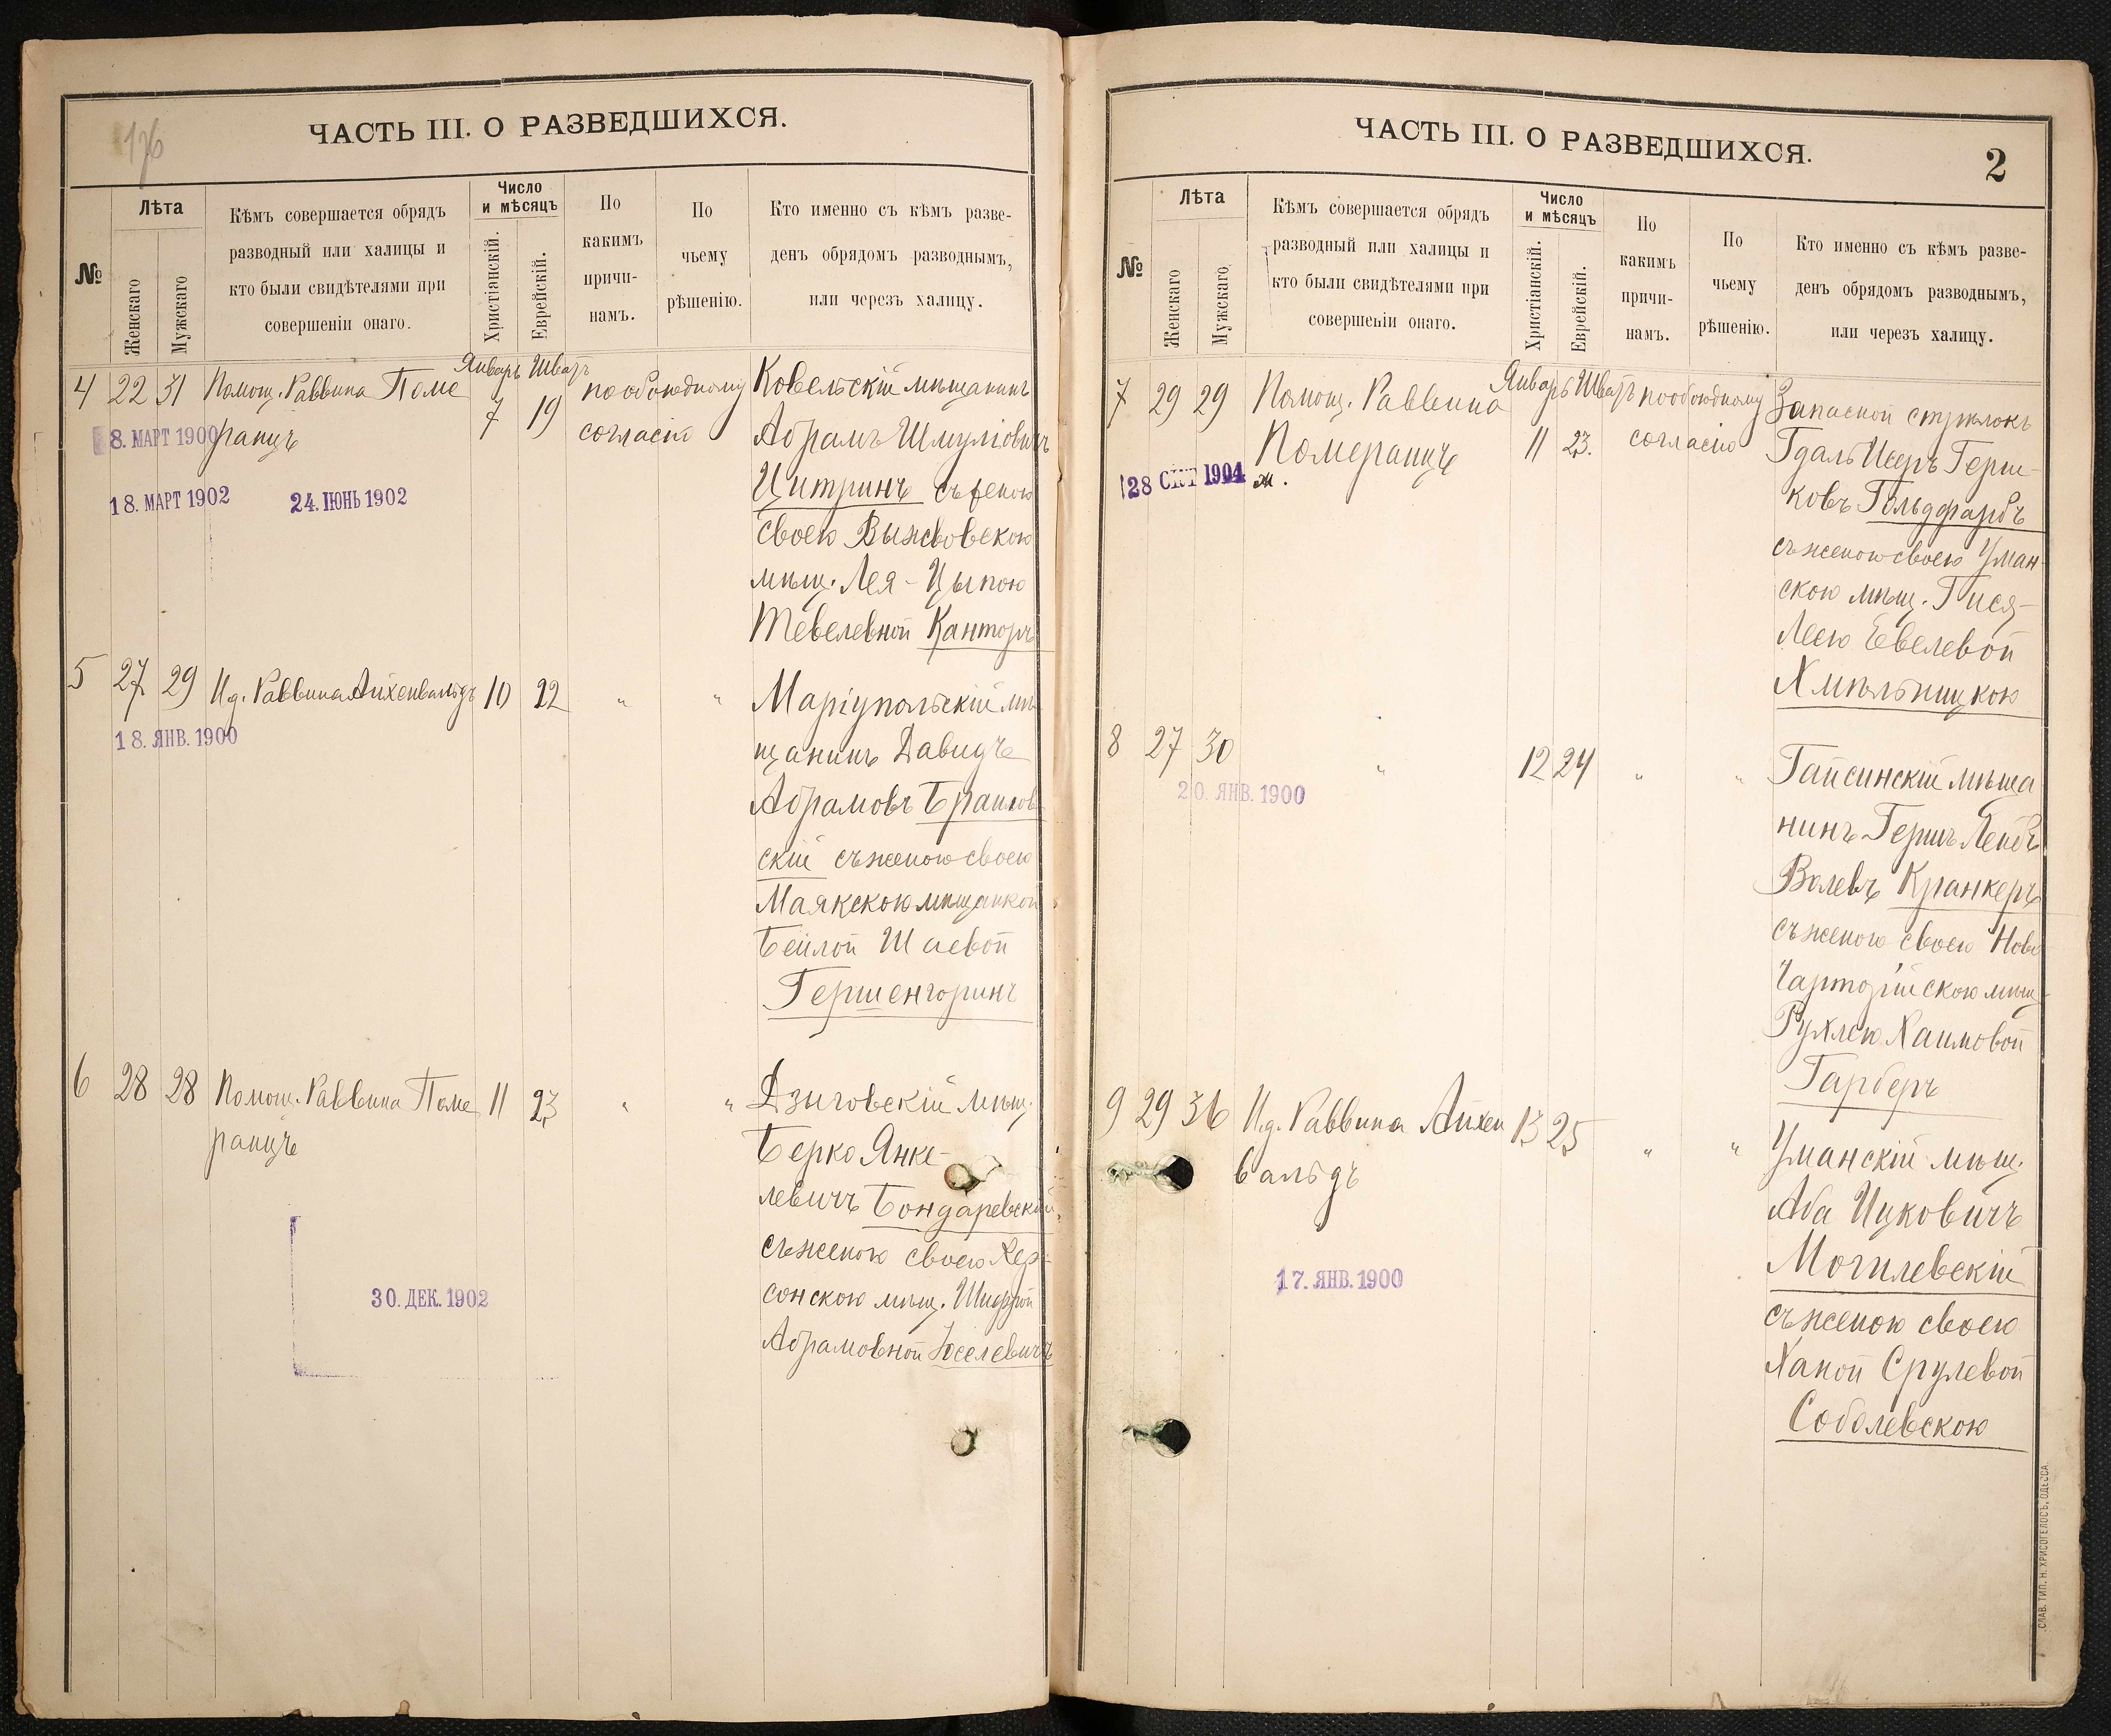 176
ЧАСТЬ III. О РАЗВЕДШИХСЯ.
№
Лѣта
Женскаго
Мужскаго
Кѣмъ совершается обрядъ
разводный или халицы и
кто были свидѣтелями при
совершеніи онаго.
Число
и мѣсяцъ
Христіанскій.
Еврейскій.
По
какимъ
причи-
намъ.
По
чьему
рѣшенію.
Кто именно съ кѣмъ разве-
денъ обрядомъ разводнымъ,
или черезъ халицу.
Январь Шватъ
4 22 31 Помощ. Раввина Поме
ранцъ
7 19
по обоюдному
согласію
8. МАРТ 1900
18. МАРТ 1902
24. ІЮНЬ 1902
Ковельскій мѣщанинъ
Абрамъ Шмуліовичъ
Цитринъ съ женою
своею Выжвовскою
мѣщ. Лея-Цыпою
Тевелевной Канторъ
5 27 29 И.д. Раввина Айхенвальдъ 10 22 " "
18. ЯНВ. 1900
Маріупольскій мѣ
щанинъ Давидъ
Абрамовъ Браилов
скій съ женою своею
Маякскою мѣщанкой
Бейлой Шаевой
Гершенгоринъ
6 28 28 Помощ. Раввина Поме 11 23 " "
ранцъ
30. ДЕК. 1902
Дзыговскій мѣщ.
Берко Янке-
левичъ Бондаревскій
съ женою своею Хер-
сонскою мѣщ. Шифрой
Абрамовной Іоселевичъ
ЧАСТЬ III. О РАЗВЕДШИХСЯ.
2
№
Лѣта
Женскаго
Мужскаго
Кѣмъ совершается обрядъ
разводный или халицы и
кто были свидѣтелями при
совершеніи онаго.
Число
и мѣсяцъ
Христіанскій.
Еврейскій.
По
какимъ
причи-
намъ.
По
чьему
рѣшенію.
Кто именно съ кѣмъ разве-
денъ обрядомъ разводнымъ,
или черезъ халицу.
Январь Шватъ
7 29 29 Помощ. Раввина
Померанцъ
11 23.
по обоюдному
согласію
28 ОКТ 1904 ж.
Запасной стрѣлокъ
Гдаль Исеръ Герш-
ковъ Гольдфарбъ
съ женою своею Уман-
скою мѣщ. Гися-
Леею Евелевой
Хмѣльницкою
8 27 30 " 12 24 " "
20. ЯНВ. 1900
Гайсинскій мѣща
нинъ Гершъ Лейбъ
Волевъ Кранкеръ
съ женою своею Ново
Чарторійскою мѣщ-
Рухлею Хаимовой
Гарберъ
9 29 36 И.д. Раввина Айхен 13 25 " "
вальдъ
17. ЯНВ. 1900
Уманскій мѣщ.
Аба Ицковичъ
Могилевскій
съ женою своею
Ханой Срулевой
Соболевскою
СЛАВ. ТИП. Н. ХРИСОГЕЛОСЪ, ОДЕССА.